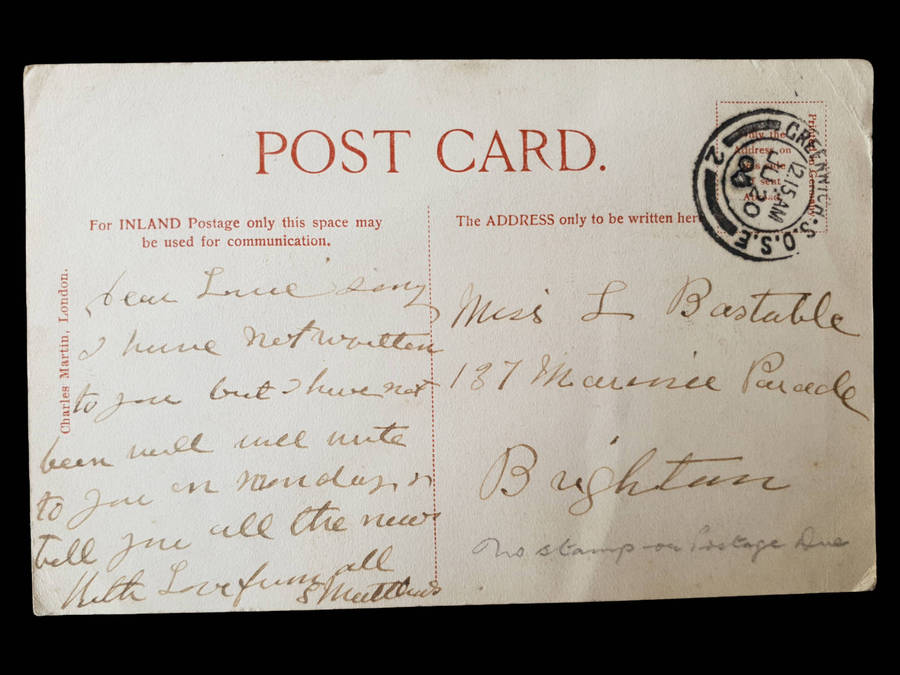 POST CARD.
For INLAND Postage only this space may
be used for communication.
The ADDRESS only to be written here
Charles Martin, London.
Printed in Germany
Only the
Address on
GREENWICH.S.O.S.E
12.15 AM
JU 20
2
Dear Louie sorry
I have not written
to you but I have not
been well will write
to you on monday &
tell you all the news
With Love from all
S Matthews
Miss L Bastable
137 Marine Parade
Brighton
No stamp or Postage Due